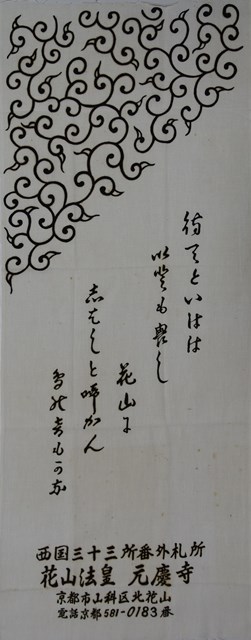 待てといはは
以登も畏し
花山に
志はしと啼かん
鳥能音もか那
西国三十三所番外札所
花山法皇 元慶寺
京都市山科区北花山
電話京都581-0183番